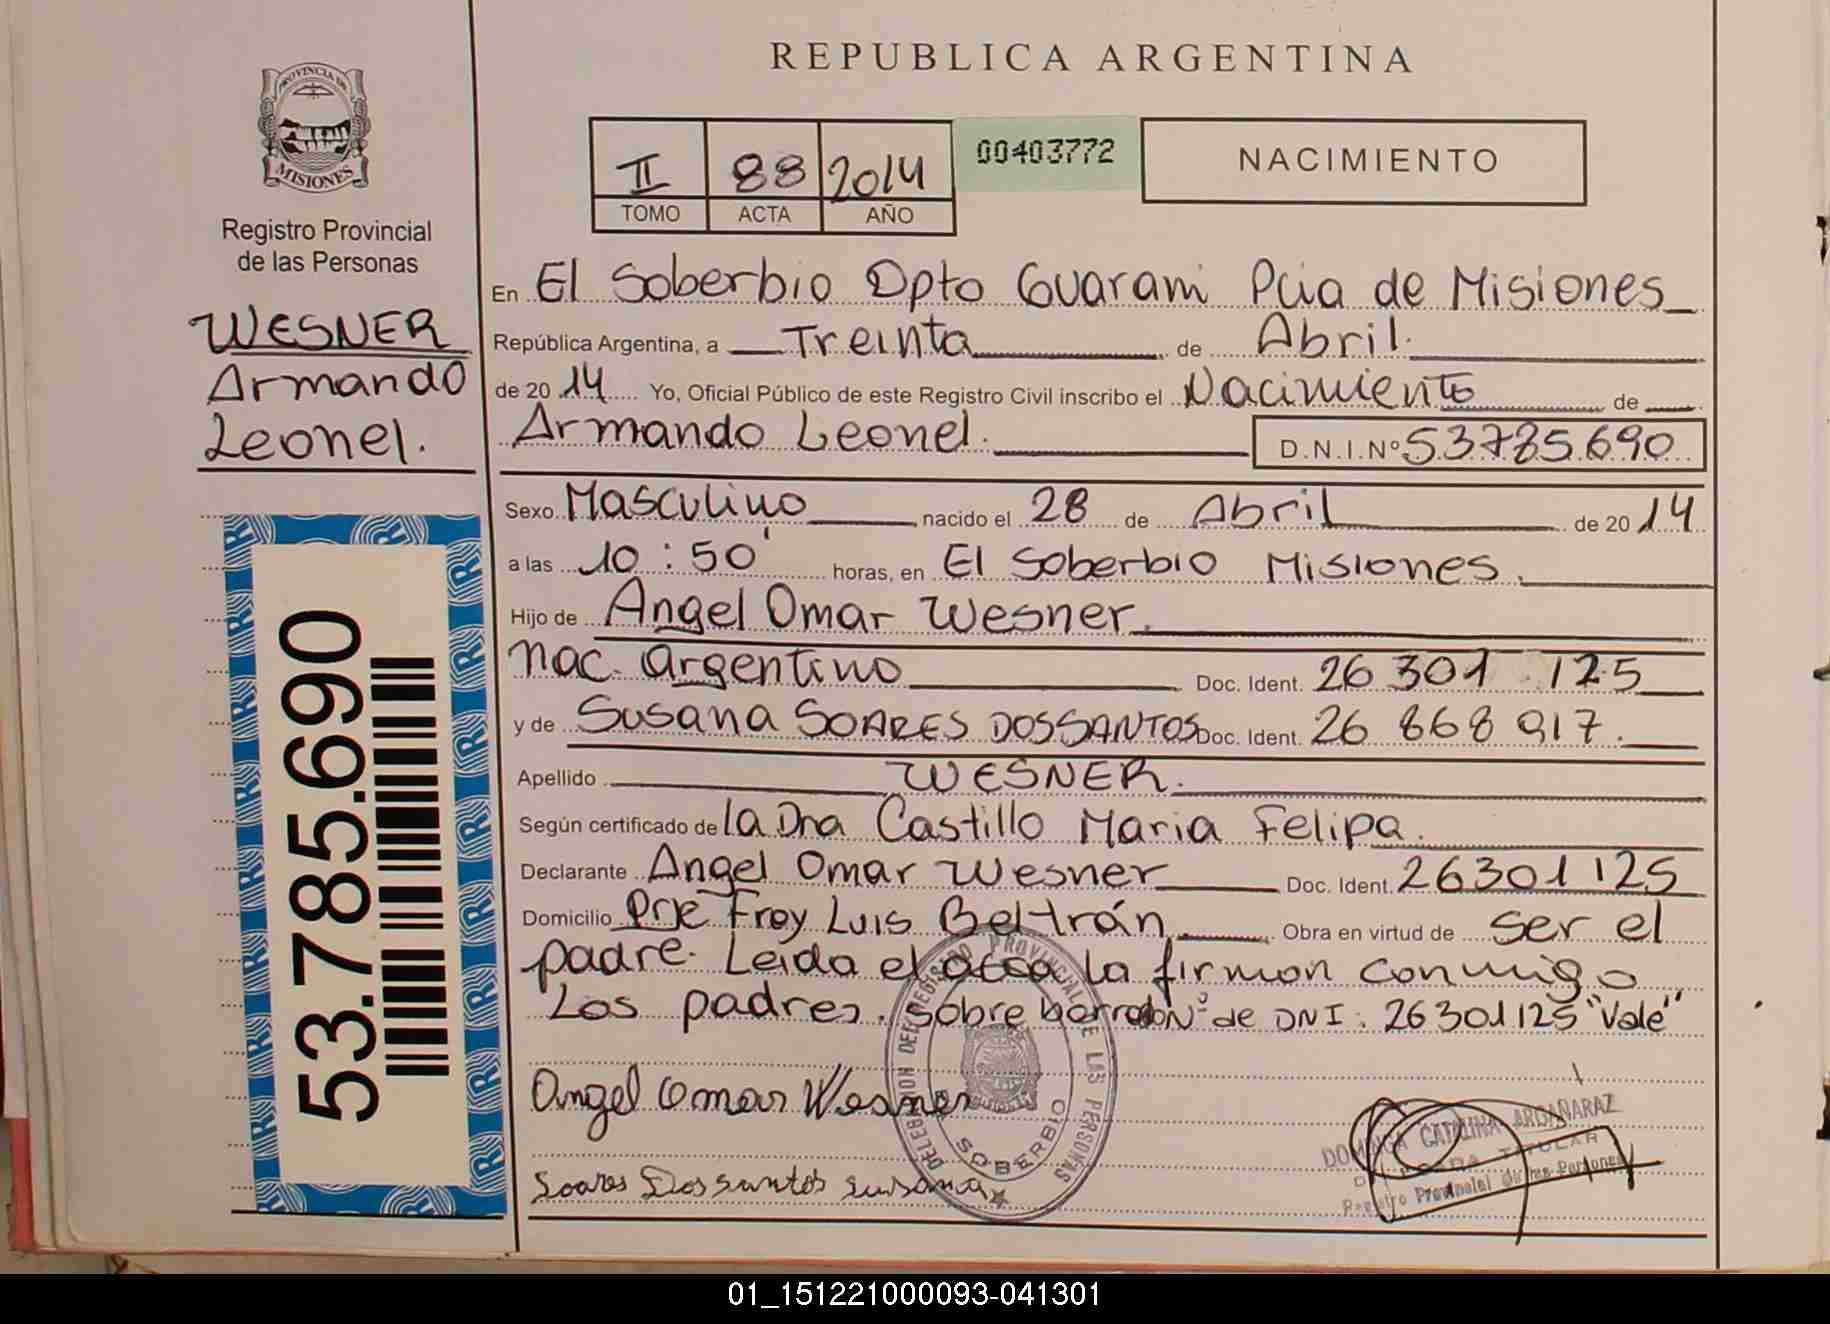 REPUBLICA ARGENTINA
PROVINCIA DE
MISIONES
Registro Provincial
de las Personas
WESNER
Armando
Leonel.
53.785.690
II 88 2014
TOMO ACTA AÑO
00403772
NACIMIENTO
En El Soberbio Dpto Guarani Pcia de Misiones
República Argentina, a Treinta de Abril.
de 2014 Yo, Oficial Público de este Registro Civil inscribo el Nacimiento de
Armando Leonel. D.N.I.Nº 53.785.690
Sexo Masculino nacido el 28 de Abril de 2014
a las 10:50' horas, en El Soberbio Misiones.
Hijo de Angel Omar Wesner.
nac. argentino Doc. Ident. 26 301 125
y de Susana SOARES DOSSANTOS Doc. Ident. 26 868 917.
Apellido WESNER.
Según certificado de la Dra Castillo Maria Felipa.
Declarante Angel Omar Wesner Doc. Ident. 26301125
Domicilio Pje Fray Luis Beltrán Obra en virtud de ser el
padre. Leida el acta la firman conmigo
Los padres. Sobre borrado Nº de DNI. 26301125 "Vale"
Angel Omar Wesner
Soares Dos santos susana
DELEGACION DEL REGISTRO PROVINCIAL DE LAS PERSONAS
SOBERBIO
CATALINA ARGAÑARAZ
TITULAR
Registro Provincial de las Personas
01_151221000093-041301